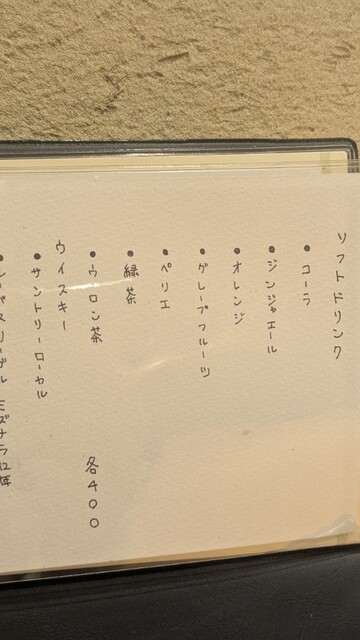 ソフトドリンク
●コーラ
●ジンジャエール
●オレンジ
●グレープフルーツ
●ペリエ
●緑茶
●ウーロン茶 各400
ウイスキー
●サントリーローヤル
●シーバスリーガル ミズナラ12年